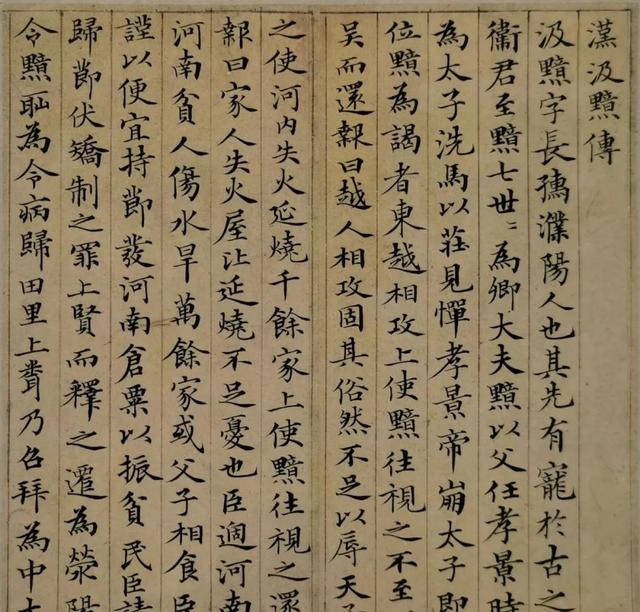 漢汲黯傳
汲黯字長孺濮陽人也其先有寵於古之
衞君至黯七世〻為卿大夫黯以父任孝景時
為太子洗馬以莊見憚孝景帝崩太子即
位黯為謁者東越相攻上使黯往視之不至
吳而還報曰越人相攻固其俗然不足以辱天子
之使河内失火延燒千餘家上使黯往視之還
報曰家人失火屋比延燒不足憂也臣過河南
河南貧人傷水旱萬餘家或父子相食臣
謹以便宜持節發河南倉粟以振貧民臣請
歸節伏矯制之罪上賢而釋之遷為滎陽
令黯恥為令病歸田里上聞乃召拜為中大